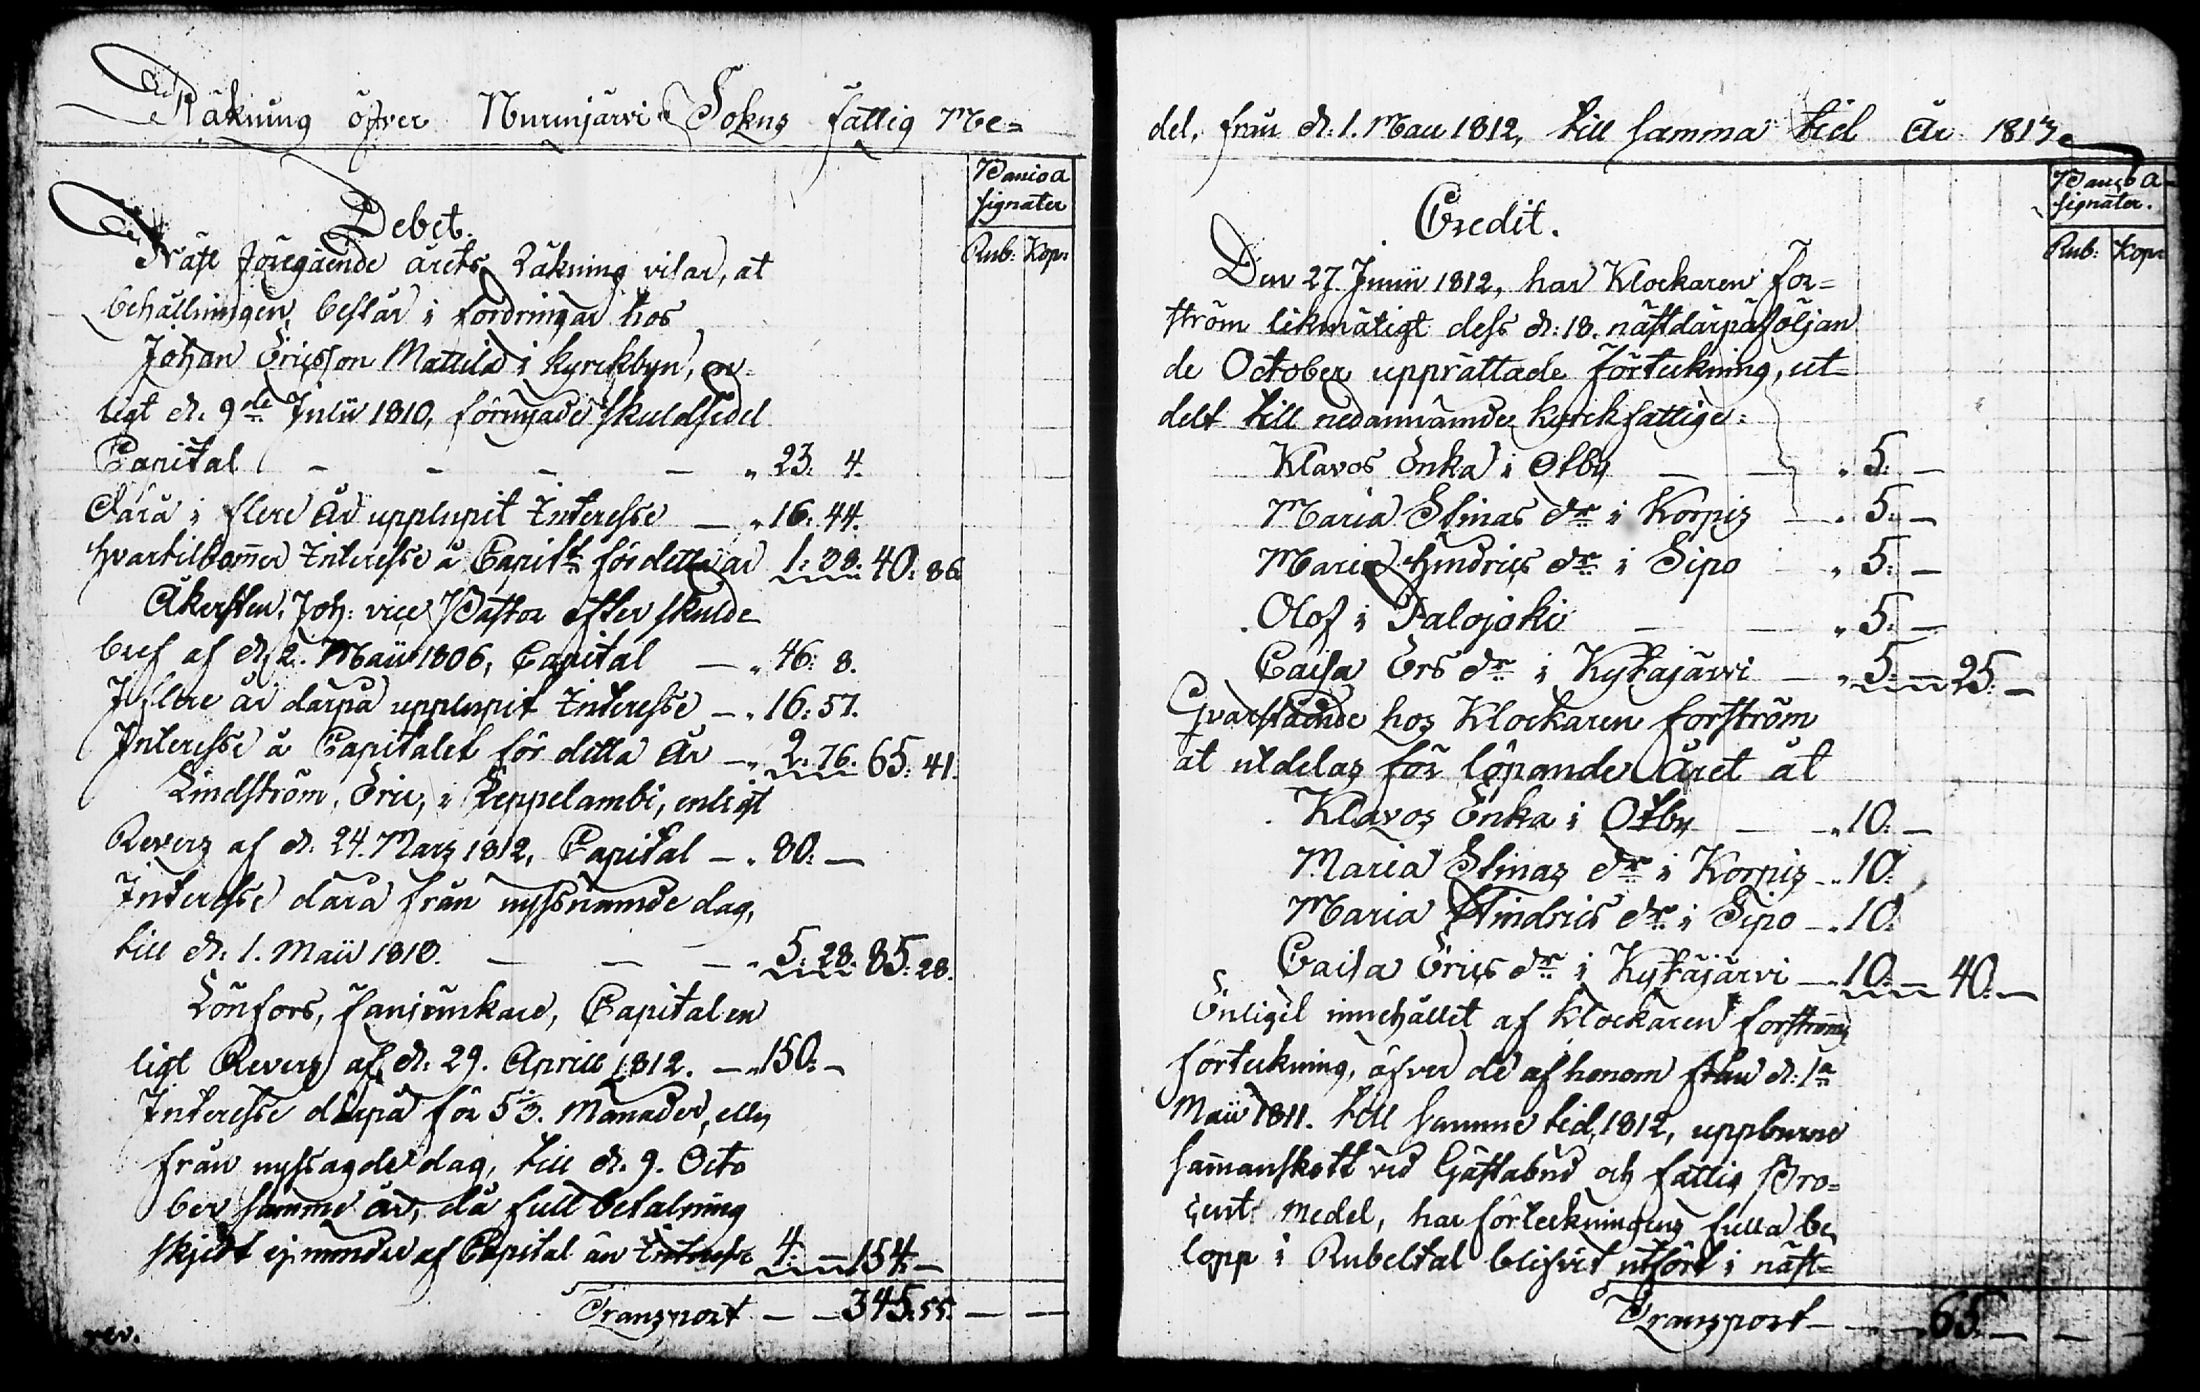 Räkning öfver Nurmjärvi Sokns fattig Me=
Banco a
signater
Rub: Kop:
Debet.
Näst föregående årets Räkning visar, at
behållningen består i fordringar hos
Johan Ericsson Mattila i Kyrckbyn, en-
ligt d. 9de Julii 1810, förnyade skuldsedel
Capital - - - - " 23: 4.
Dårå i flere år upplupit Interesse — " 16: 44.
hvartilkom̄er Interesse å Capitt för detta år 1: 38: 40: 86
Åkersten, Joh: vice Pastor efter skulde
bref af d. 2. Maii 1806, Capital — " 46: 8.
I flere år dårpå upplupit Interesse — " 16: 57.
Interesse å Capitalet för detta År — " 2: 76. 65: 41.
Lindström, Eric, i Leppelambi, enligt
Revers af d. 24. Mars 1812, Capital — " 80: —
Interesse dårå från nyssnämde dag,
till d: 1. Maii 1813. — — — " 5: 28. 85: 28.
Lönfors, Fanjunkare, Capital en
ligt Revers af d: 29. Aprill 1812. — " 150: —
Interesse dårpå för 5⅓. Månader, eller
från nyssagde dag, till d. 9. Octo
ber samme år, då full betalning
skjedt ej mindre af Capital än Interesse 4: — 154: —
Transport — — 345: 55. — —
rev.
del, från d: 1. Maii 1812, till samma tid År 1813.
Banco a-
signater.
Rub: Kop:
Credit.
Den 27. Junii 1812, har Klockaren For=
ström likmätigt dess d: 18. nästdärpåföljan
de October upprättade Förteckning, ut-
delt till nedannämde kyrckfattige:
Klavos Enka i Otby — — " 5: —
Maria Stinas dr i Korpis — " 5: —
Maria Hindrics dr i Sipo " 5: —
Olof i Palojoki — — " 5: —
Caisa Ers dr i Kytäjärvi — " 5: — 25: —
Qvarstående hos Klockaren Forström
at utdelas för löpande Året åt
Klavos Enka i Otby — — " 10: —
Maria Stinas dr i Korpis — " 10:
Maria Hindrics dr i Sipo — " 10:
Caisa Erics dr i Kytäjärvi — " 10: — 40: —
Enligit innehållet af Klockaren Forströms
förteckning, öfver de af honom från d: 1a
Maii 1811. till samme tid 1812, uppburne
sam̄anskott vid Gästabud och fattig Pro=
cent medel, har förteckningens fulla be
lopp i Rubeltal blifvit utfört i näst=
Transport — — 65. — — —